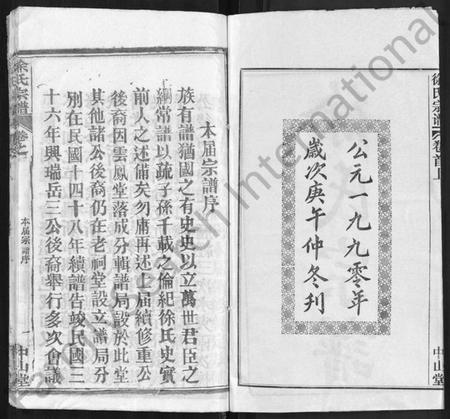 徐氏宗譜
卷首上
公元一九九零年
歲次庚午仲冬刋
中山堂
本届宗譜序
族有譜猶國之有史史以立萬世君臣之
綱常譜以疏子孫千載之倫紀徐氏史實
前人之述備矣勿庸再述上届續修重公
後裔因雲鳳堂落成分輯譜局設於此堂
其他諸公後裔仍在老祠堂設立譜局分
别在民國十四十八年續譜告竣民國三
十六年興瑞岳三公後裔舉行多次會議
徐氏宗譜
本届宗譜序
中山堂